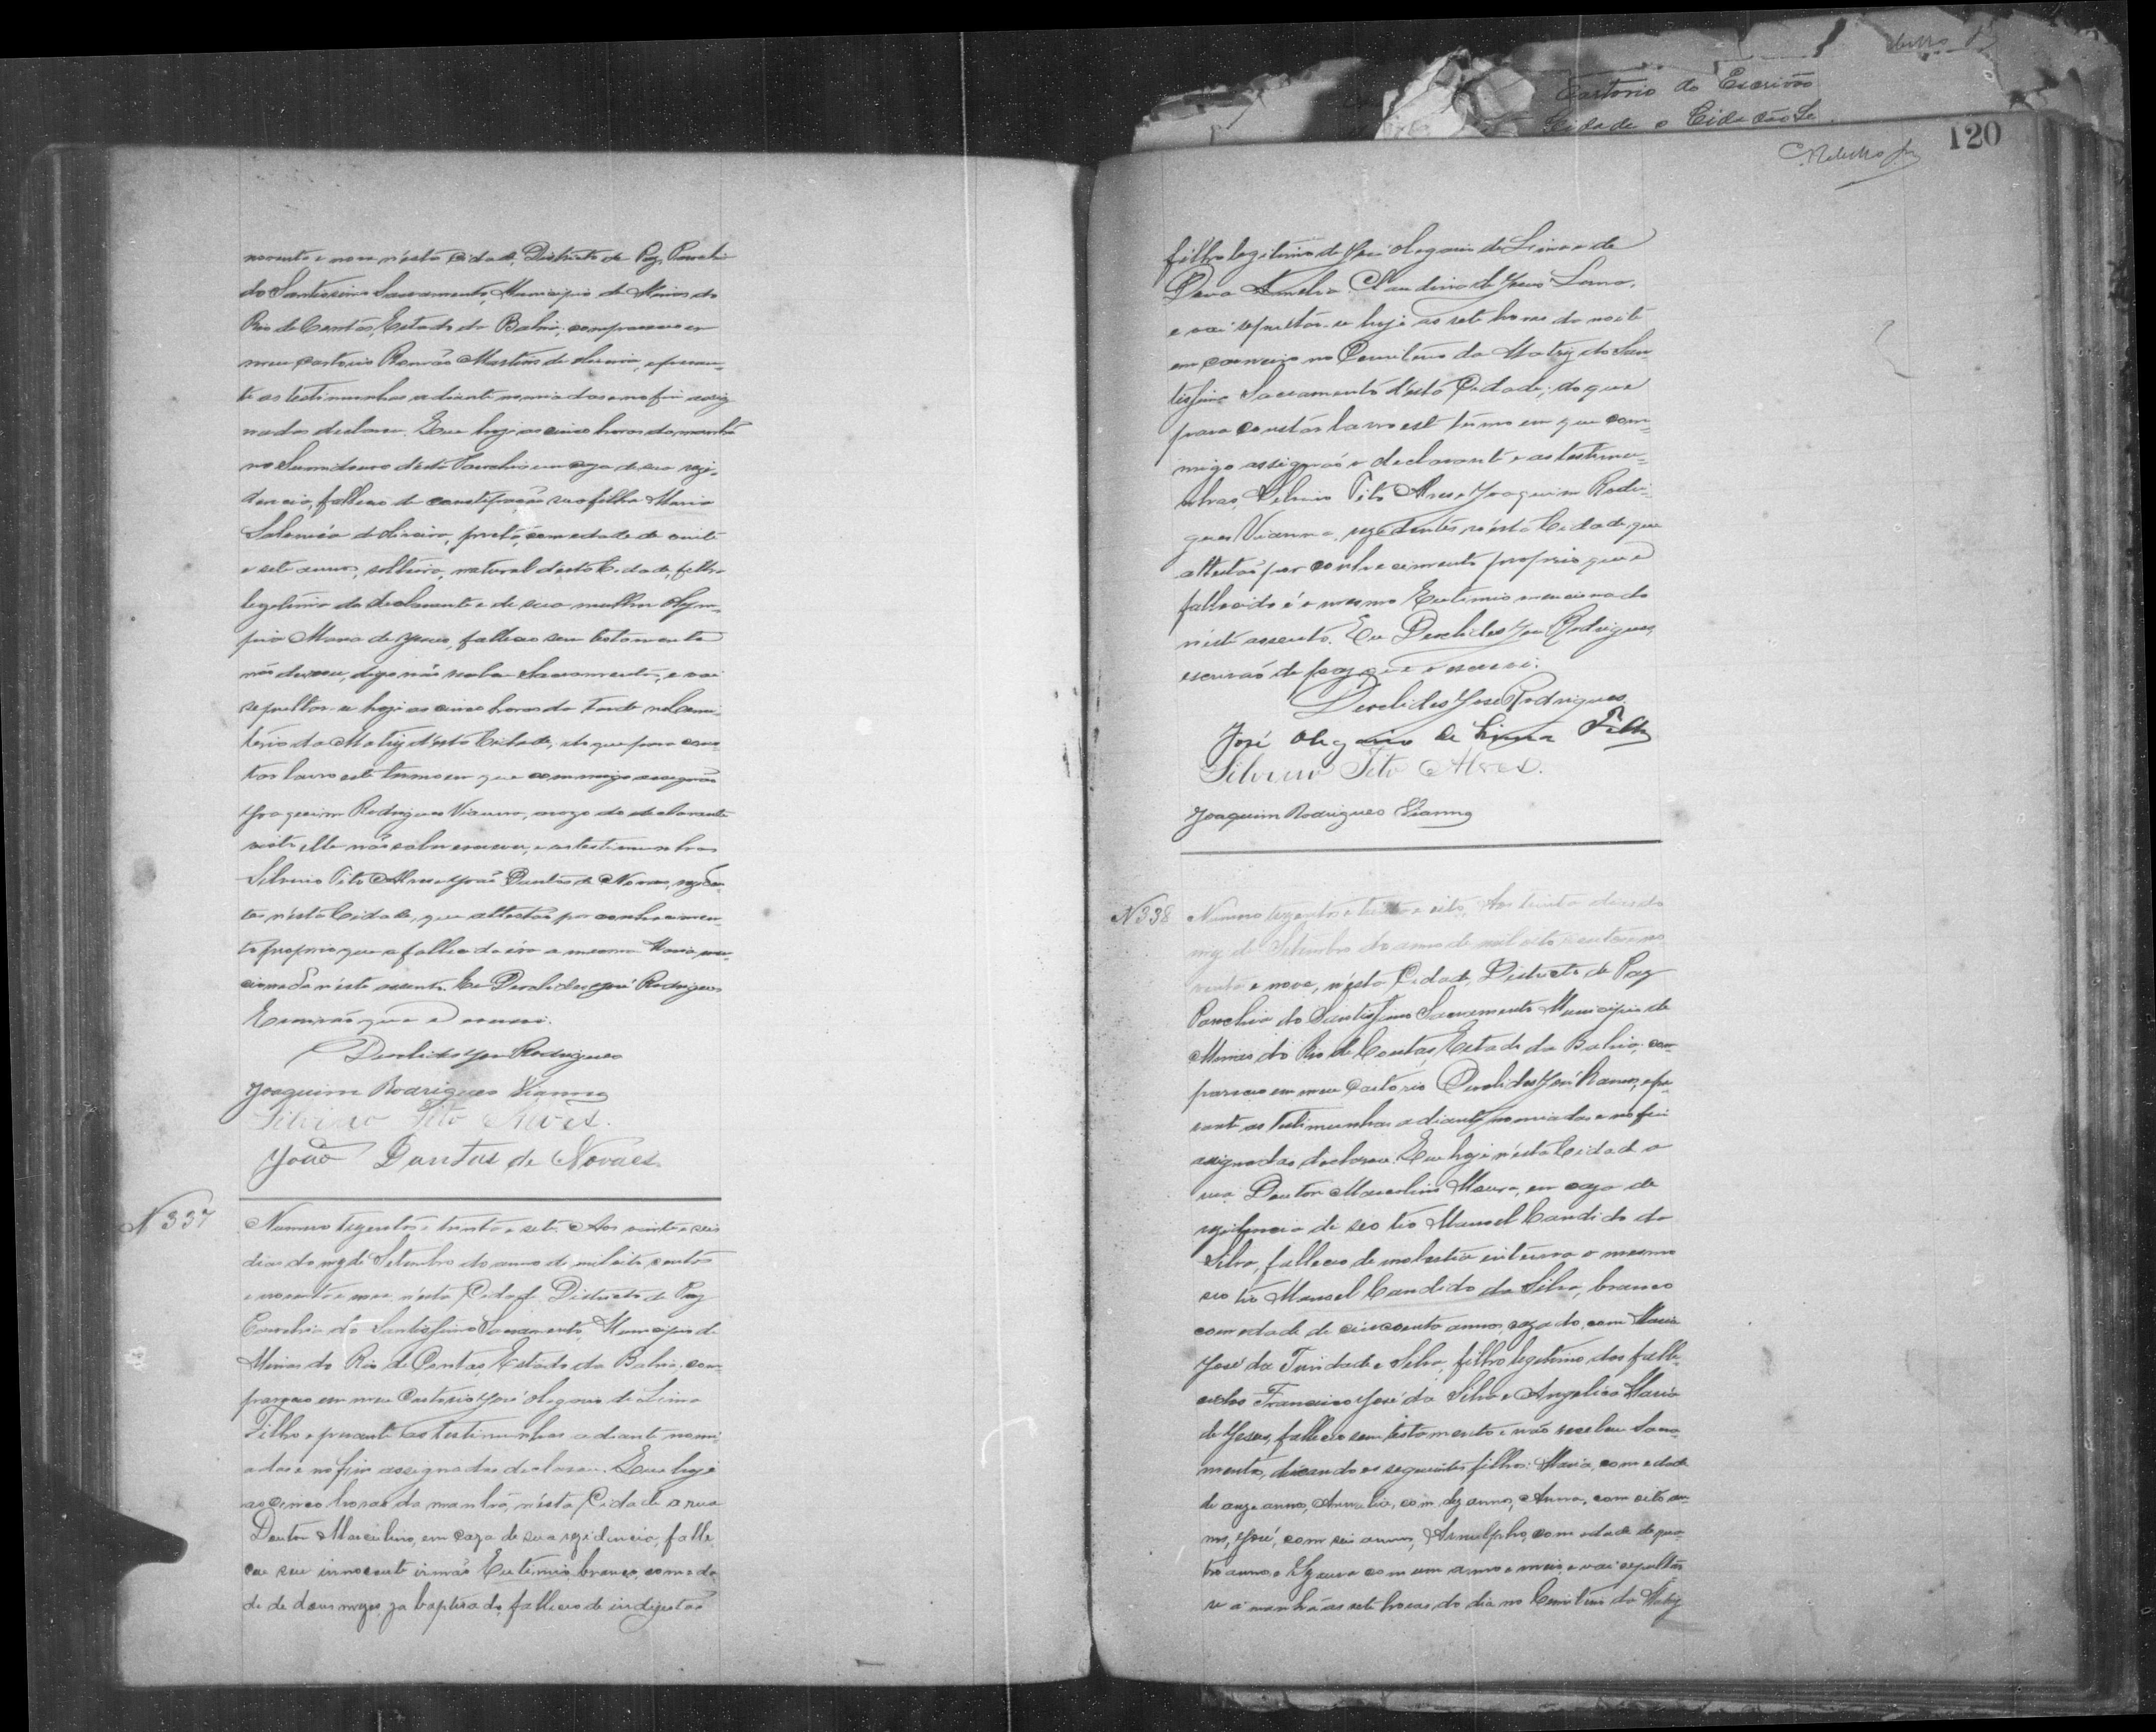 noventa e nove n'esta Cidade, Districto de Paz, Parochia
do Santissimo Sacramento, Municipio de Minas do
Rio de Contas, Estado da Bahia, compareceu em
meu Cartorio Romão Martins de , e peran-
te as testimunhas adiante nomiadas e no fim assig
nadas declarou. Que hoje as cinco horas da manhã
no Sumidouro desta Parochia em caza de sua rezi-
dencia, falleceo de constipação sua filha Maria
de Oliveira, preta, com edade de vinte
e sete annos, solteira, natural desta Cidade, filha
legitima do declarante e de sua mulher Olym-
pia Maria de Jesus, falleceo sem testamento
não deixou, digo não recebeu Sacramento, e vai
sepultar-se hoje as cinco horas da tarde no Cemi-
terio da Matriz d'esta Cidade, do que para cons-
tar lavro este termo em que commigo assignão
Joaquim Rodrigues Vianna, a rogo do declarante
visto elle não saber escrever, e as testimunhas
Silvino Tito Alves e João Dantas de Novaes, reziden-
tes n'esta Cidade, que attestão por conhecimen-
to proprio que a fallecida éra a mesma Maria men-
cionada n'este assento. Eu Deoclides José Rodrigues
Escrivão que o escrevi.
Deoclides José Rodrigues
Joaquim Rodrigues Vianna
Silvino Tito Alves.
João Dantas de Novaes.
N 337
Numero trezentos e trinta e sete. Aos vinte e seis
dias do mez de Setembro do anno de mil oito centos
e noventa e nove, n'esta Cidade, Districto de Paz
Parochia do Santissimo Sacramento, Municipio de
Minas do Rio de Contas, Estado da Bahia, com-
pareceo em meu Cartorio José Olegario de Lima
Filho e perante as testimunhas adiante nomi-
adas e no fim assignadas declarou. Que hoje
as cinco horas da manhã, n'esta Cidade a rua
Doutor Marcolino, em caza de sua rezidencia, falle-
ceu seu innocente irmão Eutimio, branco, com eda-
de de dous mezes, ja baptisado, falleceo de indigestão
120
Cartorio do Escrivão
Cidade o Cidadão
filho legitimo de José Olegario de Lima e de
Dona Amelia Claudina de Jesus Lima,
e vai sepultar-se hoje as sete horas da noite
em carneiro no Cemiterio da Matriz do San-
tissimo Sacramento d'esta Cidade; do que
para constar lavro este termo em que com-
migo assignão o declarante e as testimu-
nhas, Silvino Tito Alves e Joaquim Rodri-
gues Vianna, rezidentes n'esta Cidade, que
attestão por conhecimento proprio que o
fallecido é o mesmo Eutimio mencionado
n'este assento. Eu Deoclides José Rodrigues,
escrivão de paz que o escrevi.
Deoclides José Rodrigues.
José Olegario de Lima Filho
Silvino Tito Alves.
Joaquim Rodrigues Vianna
N 338
Numero trezentos e trinta e oito. Aos trinta dias do
mez de Setembro do anno de mil oito centos e no-
venta e nove, n'esta Cidade, Districto de Paz
Parochia do Santissimo Sacramento Municipio de
Minas do Rio de Contas, Estado da Bahia, com-
pareceo em meu Cartorio Deoclides José Ramos, e pe-
rante as testimunhas adiante nomiadas e no fim
assignadas declarou. Que hoje n'esta Cidade a
rua Doutor Marcolino Moura, em caza de
rezidencia de seo tio Manoel Candido da
Silva, falleceo de molestia interna o mesmo
seo tio Manoel Candido da Silva, branco
com edade de cincoenta annos, cazado com Maria
José da Trindade e Silva, filho legitimo dos falle-
cidos Francisco José da Silva e Angelica Maria
de Jesus, falleceo sem testamento e não recebeu Sacra-
mento, deixando os seguintes filhos: Maria, com edade
de onze annos, Amelia, com dez annos, Anna, com oito an-
nos, José, com seis annos, Arnulpho, com edade de qua-
tro annos e Izaura com um anno e meio, e vai sepultar
se a manhã as sete horas do dia no Cemiterio da Matriz